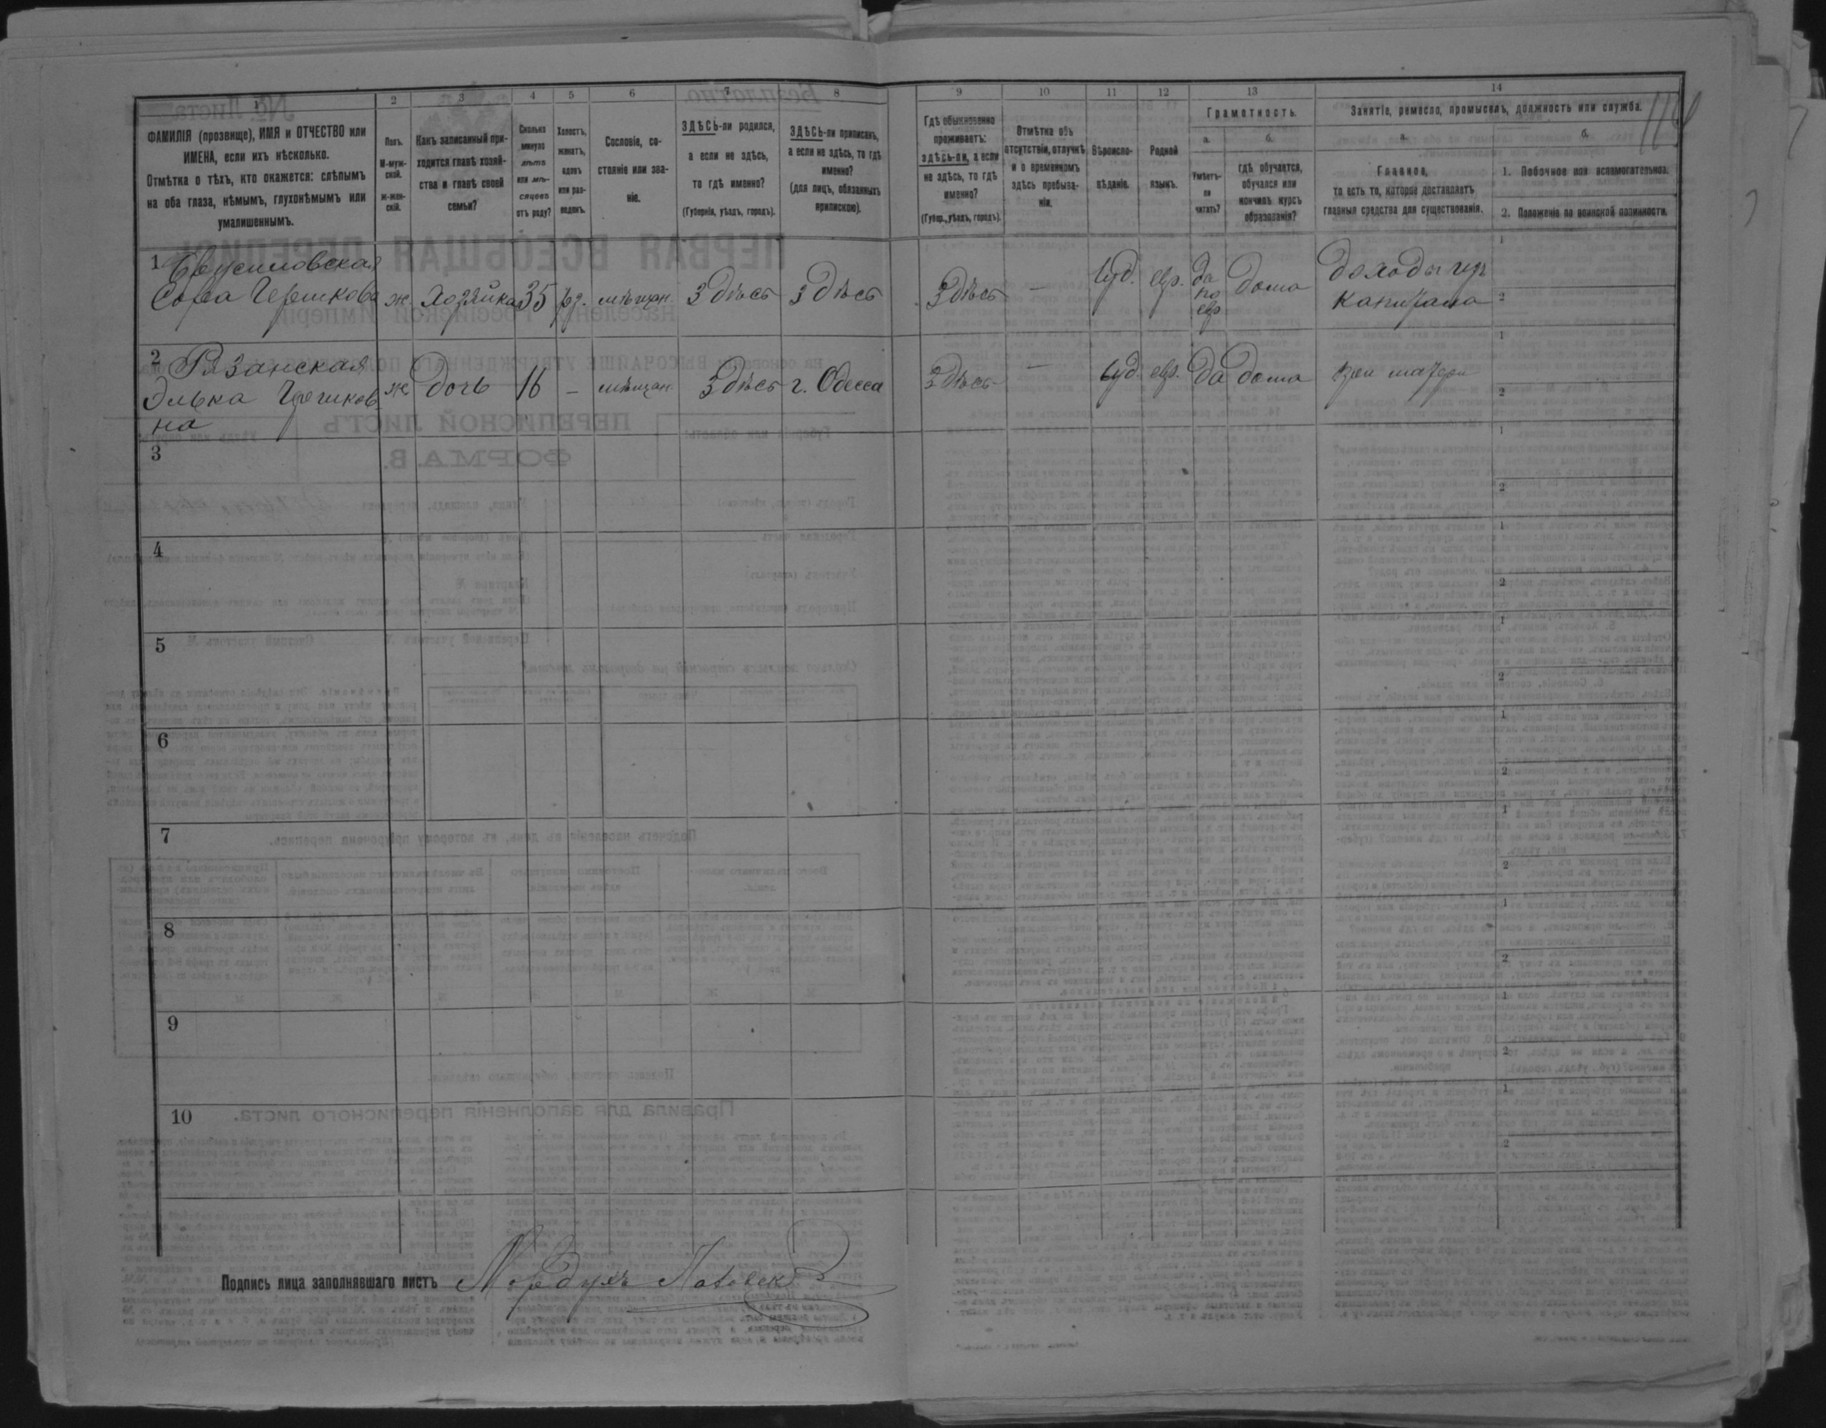 1
2
3
4
5
6
7
8
9
10
11
12
13
14
ФАМИЛІЯ (прозвище), ИМЯ и ОТЧЕСТВО или
ИМЕНА, если ихъ нѣсколько.
Отмѣтка о тѣхъ, кто окажется: слѣпымъ
на оба глаза, нѣмымъ, глухонѣмымъ или
умалишеннымъ.
Полъ.
М-муж-
скій.
ж-жен-
скій.
Какъ записанный при-
ходится главѣ хозяй-
ства и главѣ своей
семьи?
Сколько
минуло
лѣтъ
или мѣ-
сяцевъ
отъ роду?
Холостъ,
женатъ,
вдовъ
или раз-
веденъ.
Сословіе, со-
стояніе или зва-
ніе.
ЗДѢСЬ-ли родился,
а если не здѣсь,
то гдѣ именно?
(Губернія, уѣздъ, городъ).
ЗДѢСЬ-ли приписанъ,
а если не здѣсь, то гдѣ
именно?
(для лицъ, обязанныхъ
припискою).
Гдѣ обыкновенно
проживаетъ:
здѣсь-ли, а если
не здѣсь, то гдѣ
именно?
(Губер., уѣздъ, городъ).
Отмѣтка объ
отсутствіи, отлучкѣ
и о временномъ
здѣсь пребыва-
ніи.
Вѣроиспо-
вѣданіе.
Родной
языкъ.
Грамотность.
а.
Умѣетъ-
ли
читать?
б.
гдѣ обучается,
обучался или
кончилъ курсъ
образованія?
Занятіе, ремесло, промыселъ, должность или служба.
а.
Главное,
то есть то, которое доставляетъ
главныя средства для существованія.
б.
1. Побочное или вспомогательное.
2. Положеніе по воинской повинности.
1 Брусиловская
Сора Гершкова ж. Хозяйка 35 мѣщан. Здѣсь Здѣсь Здѣсь — Іуд. евр. да по евр дома
капитала
2 Рязанская
Элька Гершков
на
ж Дочь 16 — мѣщан. Здѣсь г. Одесса Здѣсь — Іуд. евр. Да дома при матери
3
4
5
6
7
8
9
10
Подпись лица заполнявшаго листъ Мордухъ